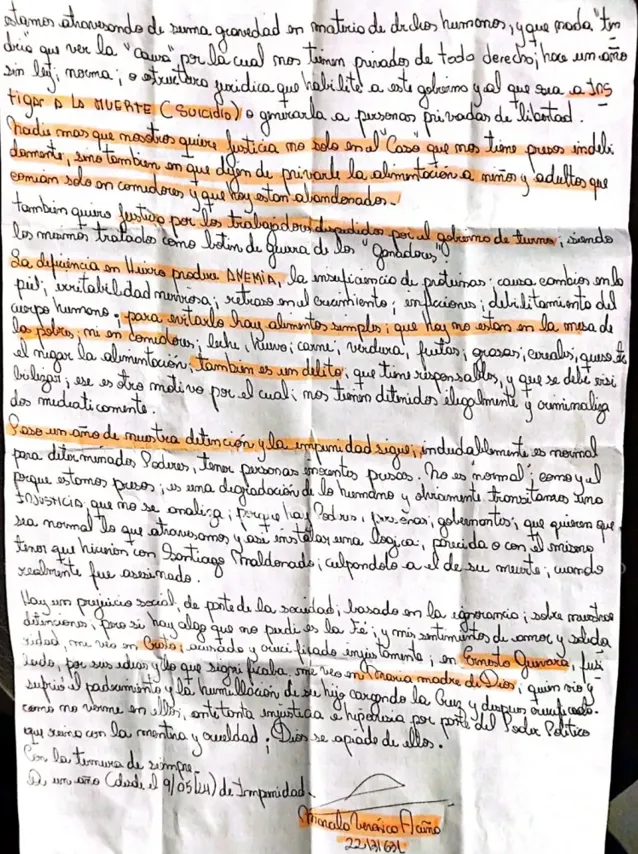 estamos atravesando de suma gravedad en materia de drchos humanos, y que nada "ten
dria" que ver la "causa" por la cual nos tienen privados de todo derecho; hace un año
sin ley; norma; o estructura juridica que habilite a este gobierno y al que sea a INS
tigar a la MUERTE (SUICIDIO) o generarla a personas privadas de libertad.
Nadie mas que nosotros quiere Justicia no solo en el "Caso" que nos tiene presos indebi
damente, sino tambien en que dejen de privarle la alimentación a niños y adultos que
comian solo en comedores y que hoy estan abandonados.
tambien quiero Justicia por los trabajadores despedidos por el gobierno de turno; siendo
los mismos tratados como botin de guerra de los "Ganadores"
La deficiencia en Hierro produce ANEMIA, la insuficiencia de proteinas: causa cambios en la
piel; irritabilidad nerviosa; retraso en el crecimiento; infecciones; debilitamiento del
cuerpo humano; para evitarlo hay alimentos simples; que hoy no estan en la mesa de
los pobres; ni en comedores; leche, huevo; carne; verdura, frutas; grasas; cereales; queso etc
el negar la alimentación; tambien es un delito; que tiene responsables, y que se debe visi
bilizar; ese es otro motivo por el cual; nos tienen detenidos ilegalmente y criminaliza
dos mediaticamente.
Paso un año de nuestra detención y la impunidad sigue; indudablemente es normal
para determinados Poderes, tener personas inocentes presas. No es normal; como y el
porque estamos presos; es una degradación de lo humano y obviamente transitamos una
INJUSTICIA que no se analiza; porque hay Poderes, personas; gobernantes; que quieren que
sea normal lo que atravesamos y asi instalar una logica; parecida o con el mismo
tenor que hicieron con Santiago Maldonado; culpandolo a el de su muerte; cuando
realmente fue asesinado.
Hay un prejuicio social, de parte de la sociedad; basado en la ignorancia; sobre nuestras
detenciones, pero si hay algo que no perdi es la Fé; y mis sentimientos de amor y solida
ridad, me veo en Cristo; acusado y crucificado injustamente; en Ernesto Guevara, fusi
lado, por sus ideas y lo que significaba, me veo en Maria madre de Dios; quien vio y
sufrió el padecimiento y la humillación de su hijo cargando la Cruz y despues crucificado.
como no verme en ellos, ante tanta injusticia e hipocresia por parte del Poder Politico
que reina con la mentira y crueldad; Dios se apiade de ellos.
Con la ternura de siempre
A, un año (desde el 9/05/24) de Impunidad.
Marcelo Verónico Acuña